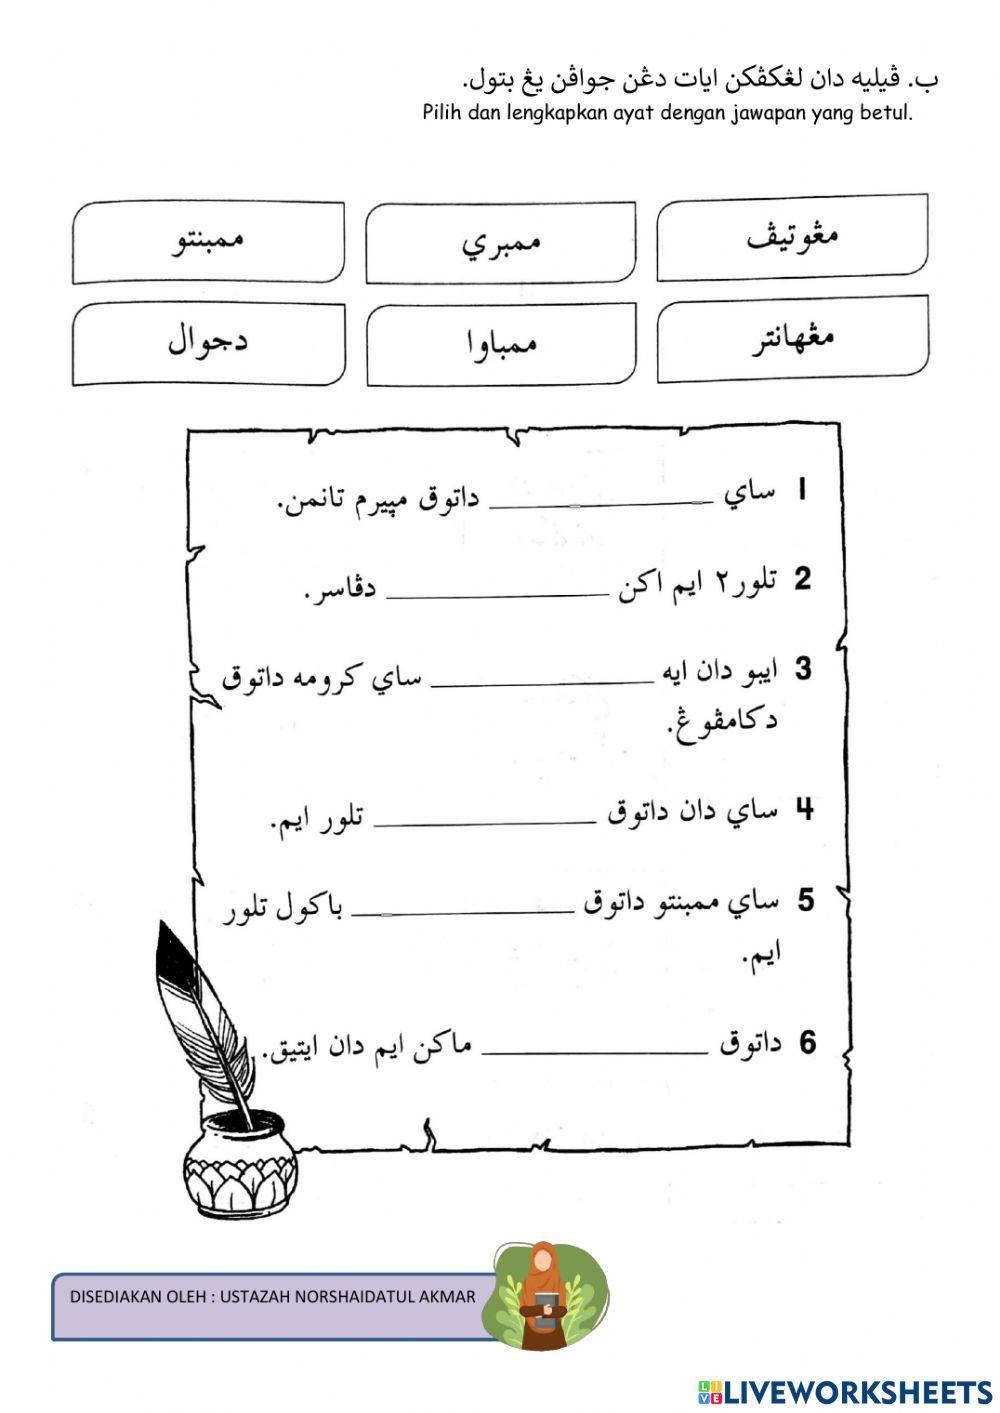 ب. ڤيليه دان لڠکڤکن ايات دڠن جواڤن يڠ بتول.
Pilih dan lengkapkan ayat dengan jawapan yang betul.
مڠوتيڤ ممبري ممبنتو
مڠهانتر ممباوا دجوال
1 ساي __________ داتوق مڽيرم تانمن.
2 تلور٢ ايم اکن __________ دڤاسر.
3 ايبو دان ايه __________ ساي کرومه داتوق
دکامڤوڠ.
4 ساي دان داتوق __________ تلور ايم.
5 ساي ممبنتو داتوق __________ باکول تلور
ايم.
6 داتوق __________ ماکن ايم دان ايتيق.
DISEDIAKAN OLEH : USTAZAH NORSHAIDATUL AKMAR
LIVE LIVEWORKSHEETS